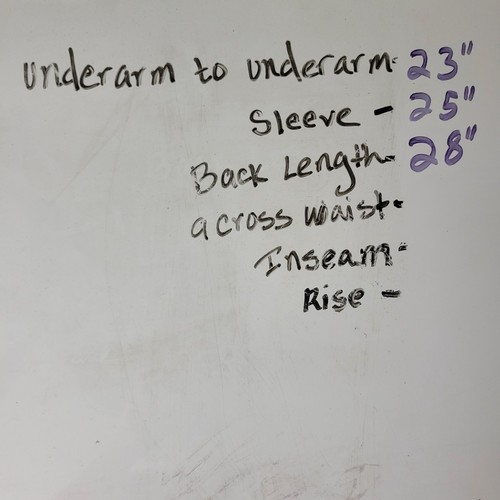 underarm to underarm- 23"
Sleeve - 25"
Back Length- 28"
across waist-
Inseam-
Rise -